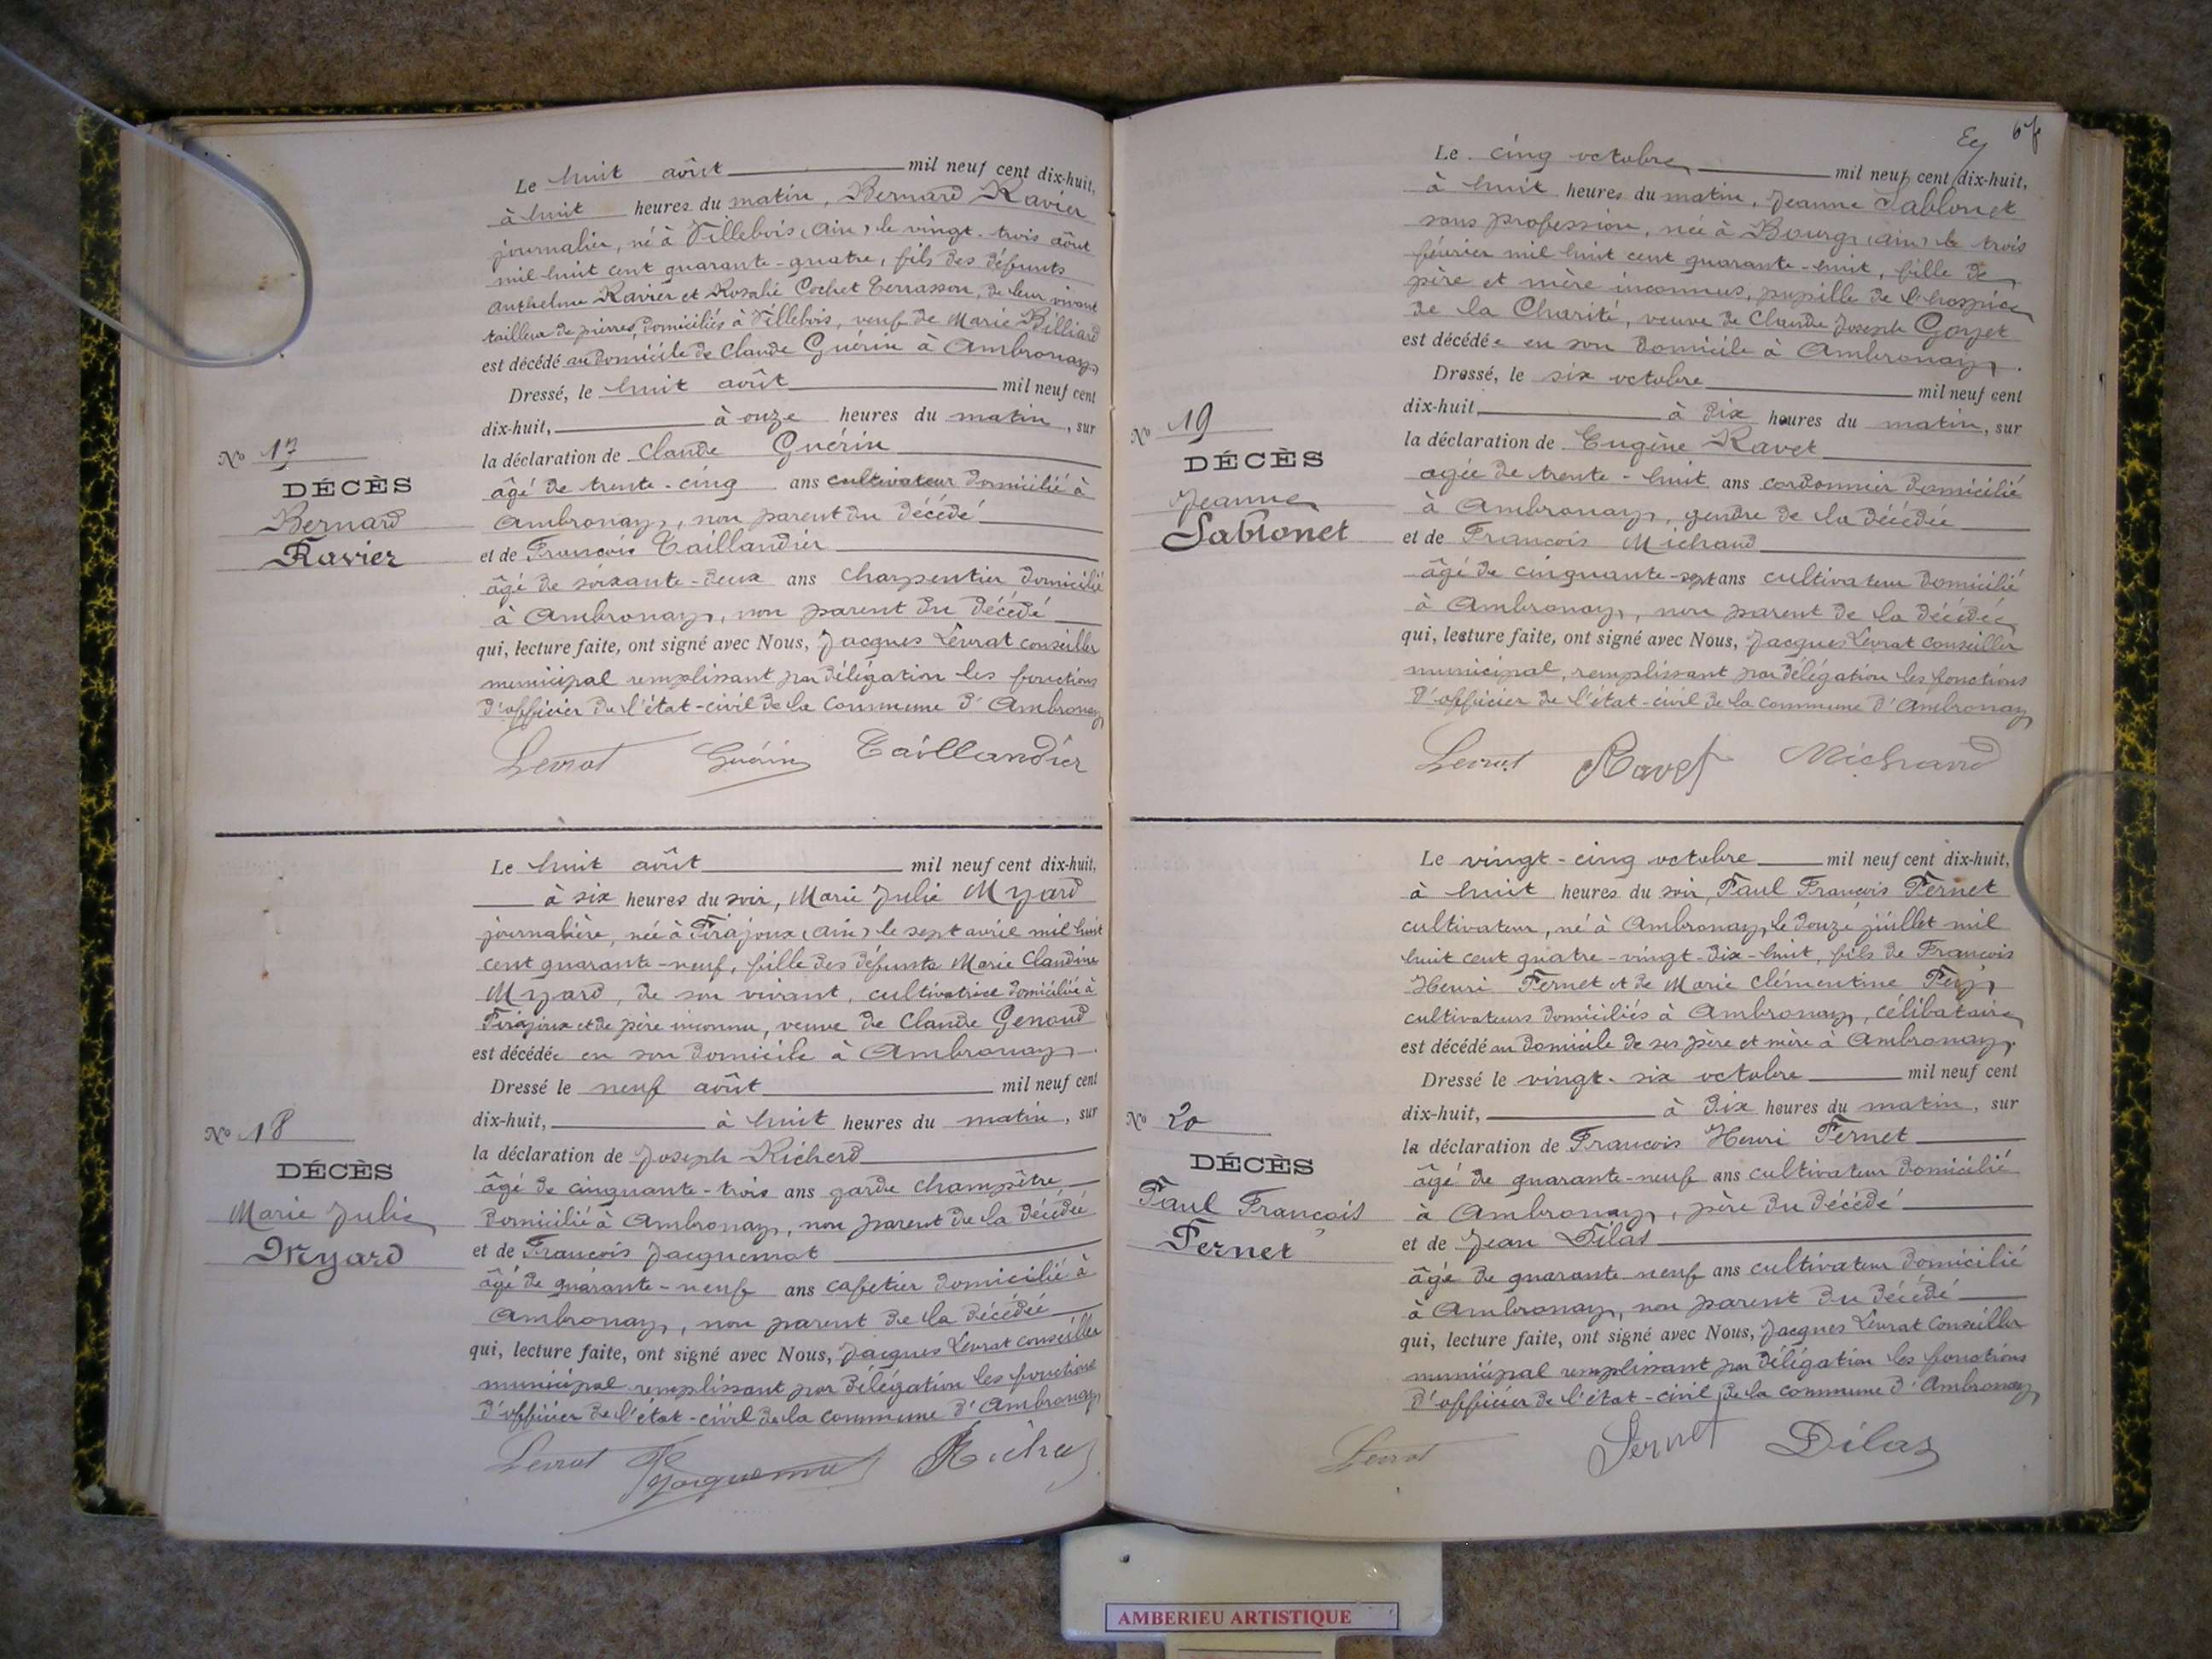 Le huit août mil neuf cent dix-huit,
à huit heures du matin, Bernard Ravier
journalier, né à Villebois (Ain) le vingt-trois août
mil huit cent quarante-quatre, fils des défunts
Anthelme Ravier et Rosalie Cochet Terrasson, de leur vivant
tailleur de pierres, domiciliés à Villebois, veuf de Marie Billiard
est décédé au domicile de Claude Guérin à Ambronay
Dressé, le huit août mil neuf cent
dix-huit, à onze heures du matin, sur
la déclaration de Claude Guérin
âgé de trente-cinq ans cultivateur domicilié à
Ambronay, non parent du décédé
et de François Taillandier
âgé de soixante-deux ans charpentier domicilié
à Ambronay, non parent du décédé
qui, lecture faite, ont signé avec Nous, Jacques Levrat conseiller
municipal remplissant par délégation les fonctions
d'officier de l'état-civil de la commune d'Ambronay
Levrat Guérin Taillandier
No 17
DÉCÈS
Bernard
Ravier
Le huit août mil neuf cent dix-huit,
à six heures du soir, Marie Julie Myard
journalière, née à Pirajoux (Ain) le sept avril mil huit
cent quarante-neuf, fille des défunts Marie Claudine
Myard, de son vivant, cultivatrice domiciliée à
Pirajoux et de père inconnu, veuve de Claude Genoud
est décédée en son domicile à Ambronay.
Dressé le neuf août mil neuf cent
dix-huit, à huit heures du matin, sur
la déclaration de Joseph Richerd
âgé de cinquante-trois ans garde champêtre
domicilié à Ambronay, non parent de la décédée
et de François Jacquemot
âgé de quarante-neuf ans cafetier domicilié à
Ambronay, non parent de la décédée
qui, lecture faite, ont signé avec Nous, Jacques Levrat conseiller
municipal remplissant par délégation les fonctions
d'officier de l'état-civil de la commune d'Ambronay
Levrat Jacquemot
No 18
DÉCÈS
Marie Julie
Myard
Le cinq octobre mil neuf cent dix-huit,
à huit heures du matin, Jeanne Sablonet
sans profession, née à Bourg (Ain) le trois
février mil huit cent quarante-huit, fille de
père et mère inconnus, pupille de l'hospice
de la Charité, veuve de Claude Joseph Goyet
est décédée en son domicile à Ambronay.
Dressé, le six octobre mil neuf cent
dix-huit à dix heures du matin, sur
la déclaration de Eugène Ravet
agée de trente-huit ans cordonnier domicilié
à Ambronay, gendre de la décédée
et de François Michaud
âgé de cinquante-sept ans cultivateur domicilié
à Ambronay, non parent de la décédée
qui, lecture faite, ont signé avec Nous, Jacques Levrat conseiller
municipal, remplissant par délégation les fonctions
d'officier de l'état-civil de la commune d'Ambronay
Levrat Ravet Michaud
No 19
DÉCÈS
Jeanne
Sablonet
Le vingt-cinq octobre mil neuf cent dix-huit,
à huit heures du soir, Paul François Fernet
cultivateur, né à Ambronay, le douze juillet mil
huit cent quatre-vingt-dix-huit, fils de François
Henri Fernet et de Marie Clémentine
cultivateurs domiciliés à Ambronay, célibataire
est décédé au domicile de ses père et mère à Ambronay.
Dressé le vingt-six octobre mil neuf cent
dix-huit, à dix heures du matin, sur
la déclaration de François Henri Fernet
âgé de quarante-neuf ans cultivateur domicilié
à Ambronay, père du décédé
et de Jean Dilas
âgé de quarante neuf ans cultivateur domicilié
à Ambronay, non parent du décédé
qui, lecture faite, ont signé avec Nous, Jacques Levrat conseiller
municipal remplissant par délégation les fonctions
d'officier de l'état-civil de la commune d'Ambronay
Levrat Fernet Dilas
No 20
DÉCÈS
Paul François
Fernet
AMBERIEU ARTISTIQUE